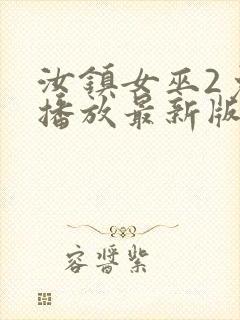 汝鎮女巫2
播放最新版
容醬紫